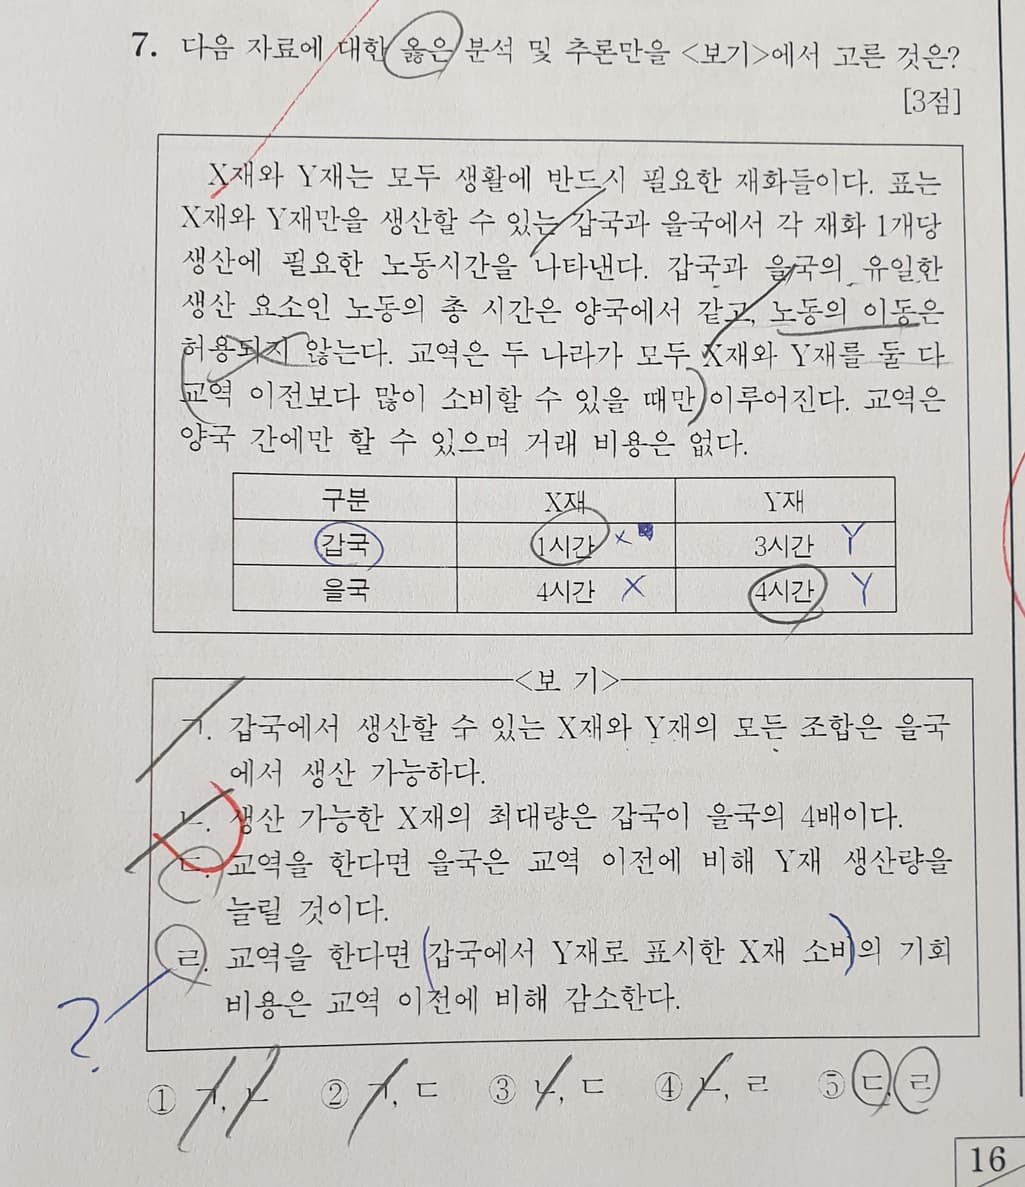 7. 다음 자료에 대한 옳은 분석 및 추론만을 <보기>에서 고른 것은?
[3점]
X재와 Y재는 모두 생활에 반드시 필요한 재화들이다. 표는
X재와 Y재만을 생산할 수 있는 갑국과 을국에서 각 재화 1개당
생산에 필요한 노동시간을 나타낸다. 갑국과 을국의 유일한
생산 요소인 노동의 총 시간은 양국에서 같고, 노동의 이동은
허용되지 않는다. 교역은 두 나라가 모두 X재와 Y재를 둘 다
교역 이전보다 많이 소비할 수 있을 때만 이루어진다. 교역은
양국 간에만 할 수 있으며 거래 비용은 없다.
구분 X재 Y재
갑국 1시간 X 3시간 Y
을국 4시간 X 4시간 Y
<보 기>
ㄱ. 갑국에서 생산할 수 있는 X재와 Y재의 모든 조합은 을국
에서 생산 가능하다.
ㄴ. 생산 가능한 X재의 최대량은 갑국이 을국의 4배이다.
ㄷ. 교역을 한다면 을국은 교역 이전에 비해 Y재 생산량을
늘릴 것이다.
ㄹ. 교역을 한다면 갑국에서 Y재로 표시한 X재 소비의 기회
비용은 교역 이전에 비해 감소한다.
?
① ㄱ, ㄴ ② ㄱ, ㄷ ③ ㄴ, ㄷ ④ ㄴ, ㄹ ⑤ ㄷ, ㄹ
16